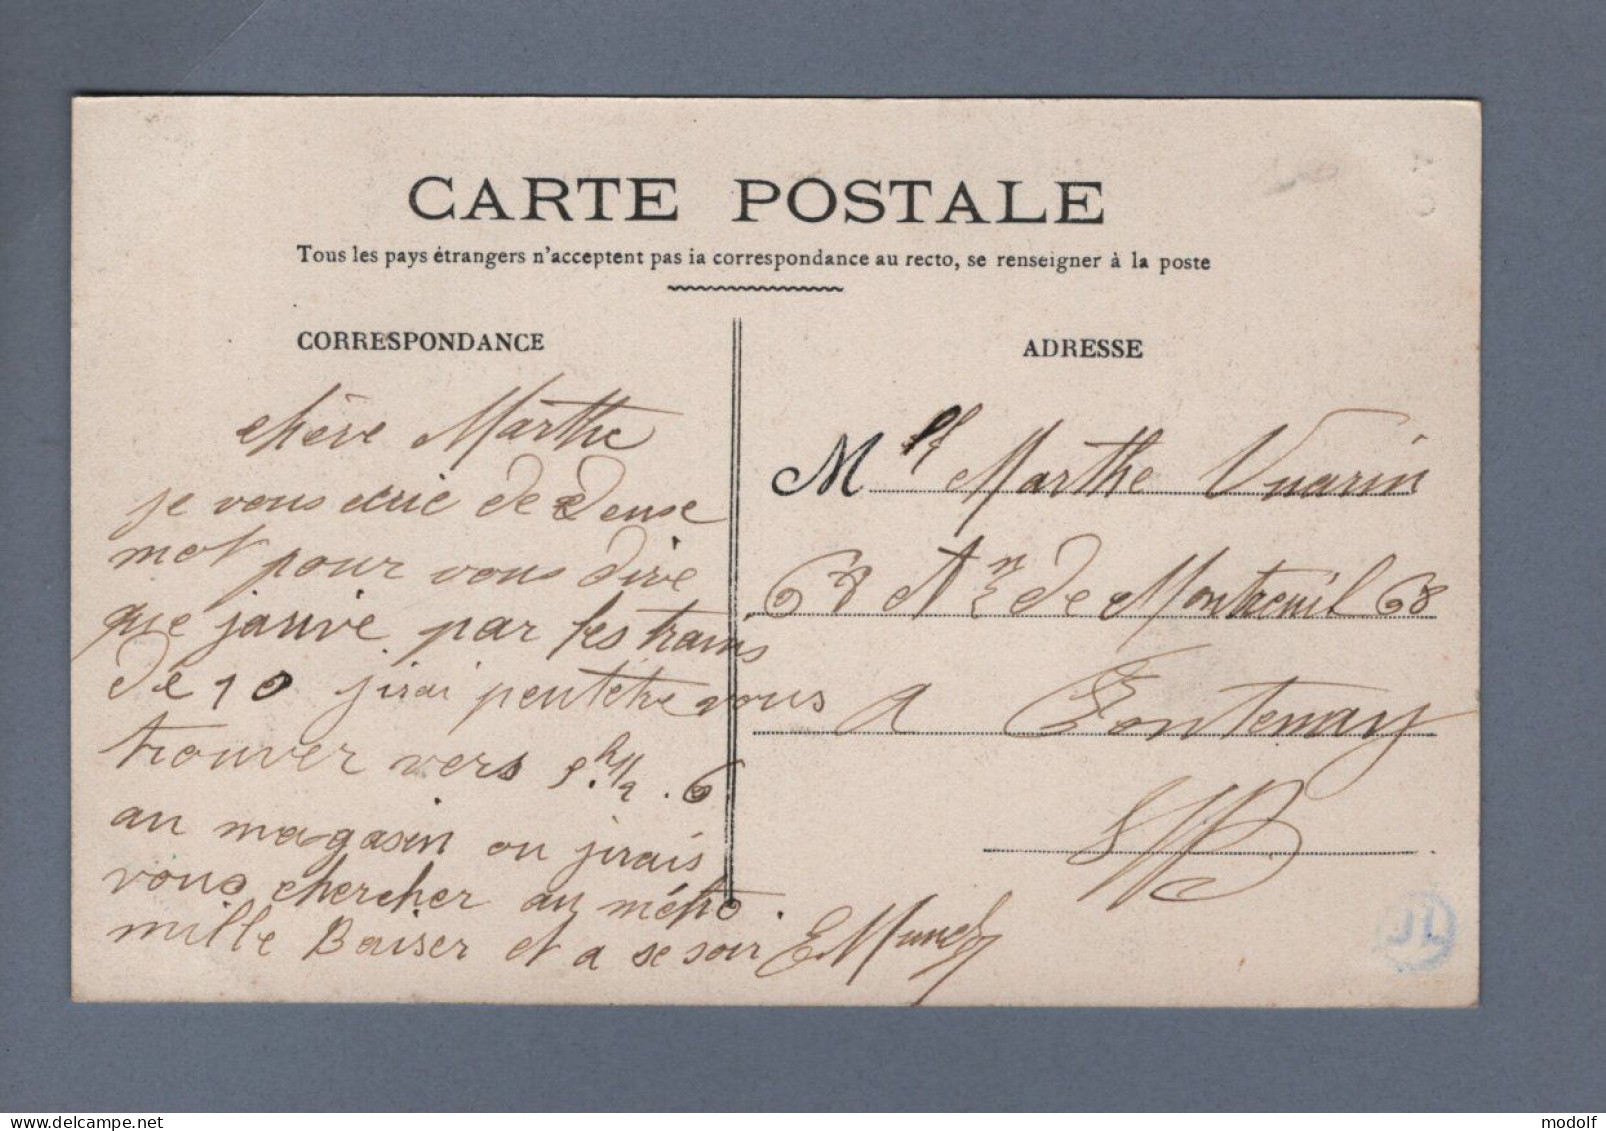 CARTE POSTALE
Tous les pays étrangers n'acceptent pas la correspondance au recto, se renseigner à la poste
CORRESPONDANCE
chère Marthe
je vous écric de deuse
mot pour vous dire
que jarive par les trains
de 10 jirai peutetre vous
trouver vers 5.h 1/2 . 6
au magasin ou jirais
vous chercher au métro .
mille Baiser et a se soir
ADRESSE
Mell Marthe Vuarin
68 de Montreuil 68
a Fontenay
S/B
JL
modolf